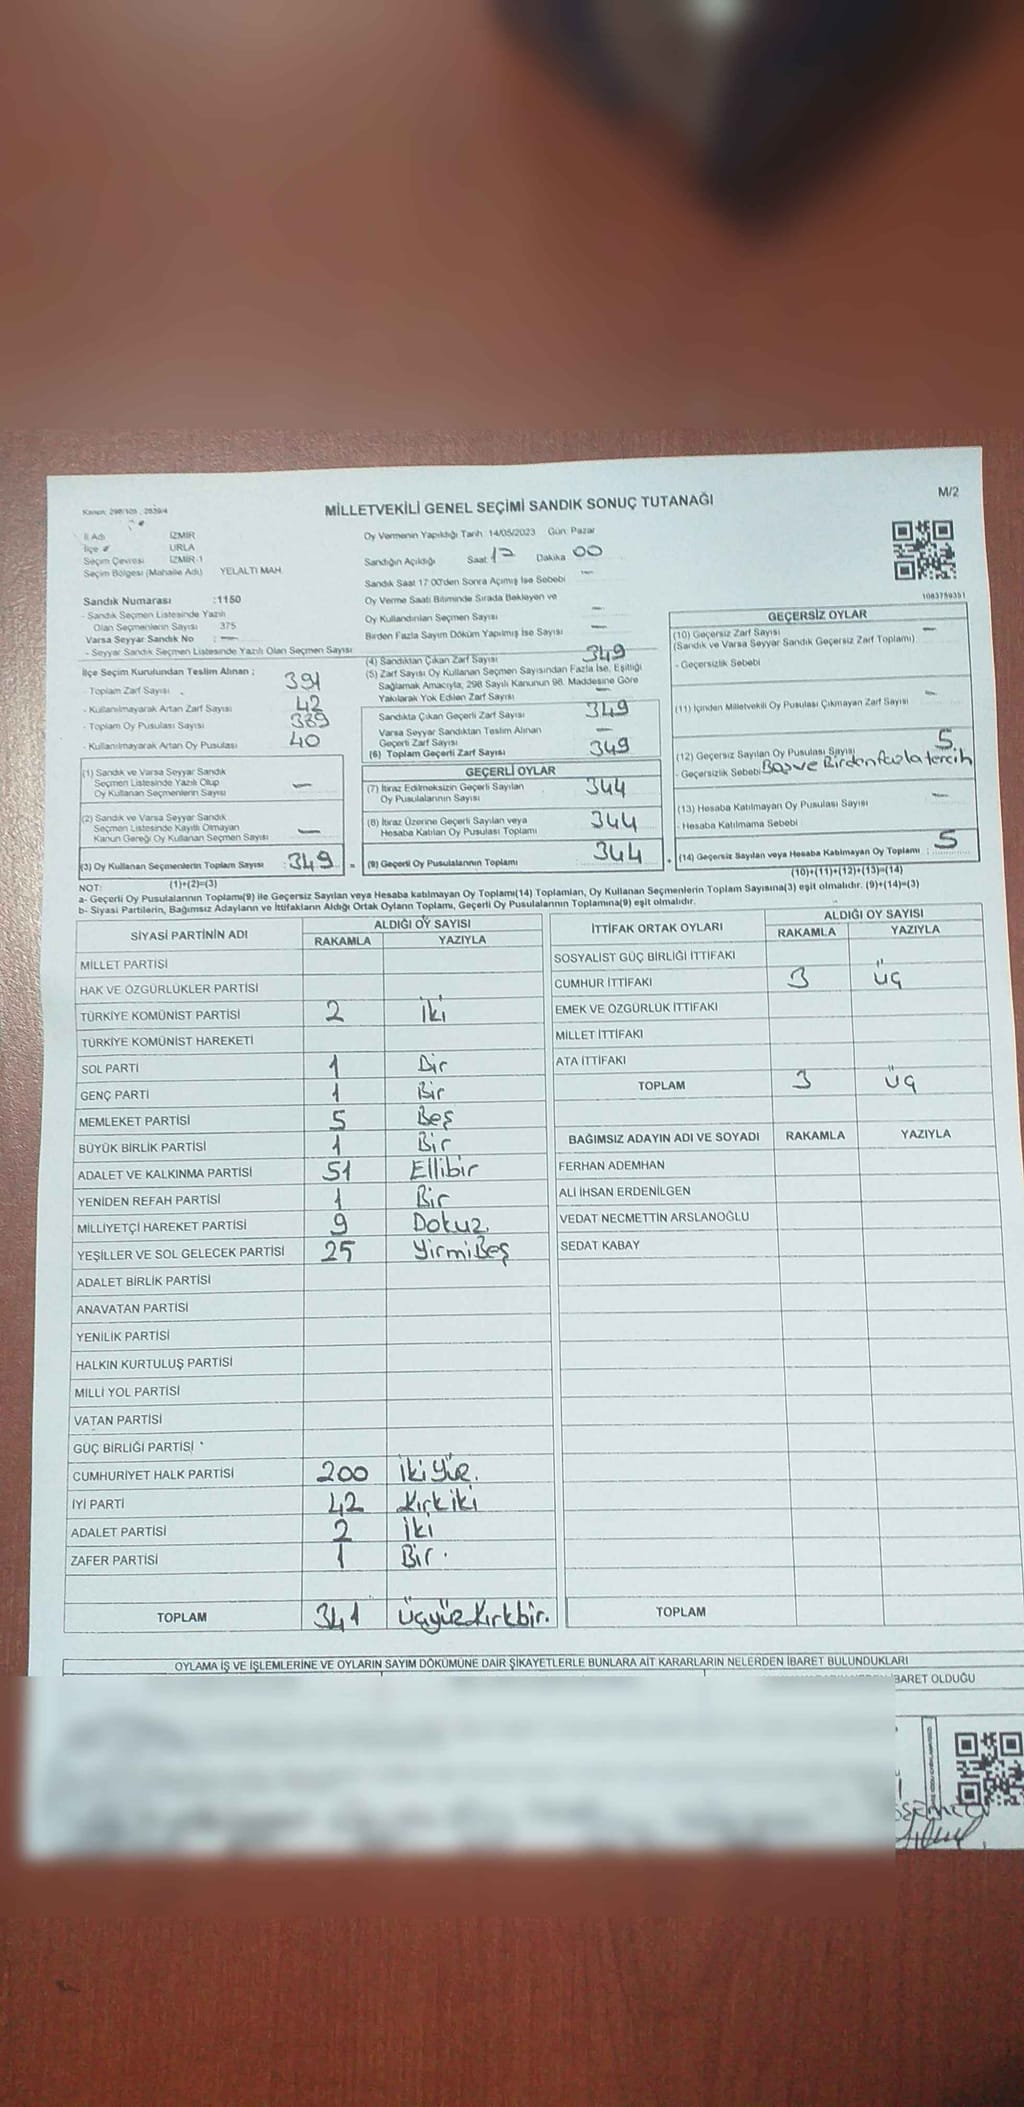 Kanun: 298/105, 2839/4
MİLLETVEKİLİ GENEL SEÇİMİ SANDIK SONUÇ TUTANAĞI
M/2
İl Adı İZMİR
İlçe URLA
Seçim Çevresi İZMİR-1
Seçim Bölgesi (Mahalle Adı) YELALTI MAH.
Sandık Numarası :1150
- Sandık Seçmen Listesinde Yazılı
Olan Seçmenlerin Sayısı 375
Varsa Seyyar Sandık No : —
- Seyyar Sandık Seçmen Listesinde Yazılı Olan Seçmen Sayısı
İlçe Seçim Kurulundan Teslim Alınan ;
- Toplam Zarf Sayısı 391
- Kullanılmayarak Artan Zarf Sayısı 42
- Toplam Oy Pusulası Sayısı 389
- Kullanılmayarak Artan Oy Pusulası 40
(1) Sandık ve Varsa Seyyar Sandık
Seçmen Listesinde Yazılı Olup
Oy Kullanan Seçmenlerin Sayısı —
(2) Sandık ve Varsa Seyyar Sandık
Seçmen Listesinde Kayıtlı Olmayan
Kanun Gereği Oy Kullanan Seçmen Sayısı —
(3) Oy Kullanan Seçmenlerin Toplam Sayısı : 349 =
(1)+(2)=(3)
Oy Vermenin Yapıldığı Tarih :14/05/2023 Gün: Pazar
Sandığın Açıldığı Saat 17 Dakika 00
Sandık Saat 17:00'den Sonra Açılmış İse Sebebi —
Oy Verme Saati Bitiminde Sırada Bekleyen ve
Oy Kullandırılan Seçmen Sayısı —
Birden Fazla Sayım Döküm Yapılmış İse Sayısı —
(4) Sandıktan Çıkan Zarf Sayısı 349
(5) Zarf Sayısı Oy Kullanan Seçmen Sayısından Fazla İse, Eşitliği
Sağlamak Amacıyla, 298 Sayılı Kanunun 98. Maddesine Göre
Yakılarak Yok Edilen Zarf Sayısı —
Sandıkta Çıkan Geçerli Zarf Sayısı 349
Varsa Seyyar Sandıktan Teslim Alınan
Geçerli Zarf Sayısı —
(6) Toplam Geçerli Zarf Sayısı 349
GEÇERLİ OYLAR
(7) İtiraz Edilmeksizin Geçerli Sayılan
Oy Pusulalarının Sayısı 344
(8) İtiraz Üzerine Geçerli Sayılan veya
Hesaba Katılan Oy Pusulası Toplamı 344
(9) Geçerli Oy Pusulalarının Toplamı 344 +
1083759351
GEÇERSİZ OYLAR
(10) Geçersiz Zarf Sayısı —
(Sandık ve Varsa Seyyar Sandık Geçersiz Zarf Toplamı)
- Geçersizlik Sebebi
(11) İçinden Milletvekili Oy Pusulası Çıkmayan Zarf Sayısı —
(12) Geçersiz Sayılan Oy Pusulası Sayısı 5
- Geçersizlik Sebebi Boş ve Birden fazla tercih
(13) Hesaba Katılmayan Oy Pusulası Sayısı —
- Hesaba Katılmama Sebebi
(14) Geçersiz Sayılan veya Hesaba Katılmayan Oy Toplamı : 5
(10)+(11)+(12)+(13)=(14)
NOT:
a- Geçerli Oy Pusulalarının Toplamı(9) ile Geçersiz Sayılan veya Hesaba katılmayan Oy Toplamı(14) Toplamları, Oy Kullanan Seçmenlerin Toplam Sayısına(3) eşit olmalıdır. (9)+(14)=(3)
b- Siyasi Partilerin, Bağımsız Adayların ve İttifakların Aldığı Ortak Oyların Toplamı, Geçerli Oy Pusulalarının Toplamına(9) eşit olmalıdır.
SİYASİ PARTİNİN ADI ALDIĞI OY SAYISI
RAKAMLA YAZIYLA
MİLLET PARTİSİ
HAK VE ÖZGÜRLÜKLER PARTİSİ
TÜRKİYE KOMÜNİST PARTİSİ 2 İki
TÜRKİYE KOMÜNİST HAREKETİ
SOL PARTİ 1 Bir
GENÇ PARTİ 1 Bir
MEMLEKET PARTİSİ 5 Beş
BÜYÜK BİRLİK PARTİSİ 1 Bir
ADALET VE KALKINMA PARTİSİ 51 Ellibir
YENİDEN REFAH PARTİSİ 1 Bir
MİLLİYETÇİ HAREKET PARTİSİ 9 Dokuz.
YEŞİLLER VE SOL GELECEK PARTİSİ 25 YirmiBeş
ADALET BİRLİK PARTİSİ
ANAVATAN PARTİSİ
YENİLİK PARTİSİ
HALKIN KURTULUŞ PARTİSİ
MİLLİ YOL PARTİSİ
VATAN PARTİSİ
GÜÇ BİRLİĞİ PARTİSİ
CUMHURİYET HALK PARTİSİ 200 İkiYüz.
İYİ PARTİ 42 Kırkiki
ADALET PARTİSİ 2 İki
ZAFER PARTİSİ 1 Bir.
TOPLAM 341 ÜçyüzKırkbir.
İTTİFAK ORTAK OYLARI ALDIĞI OY SAYISI
RAKAMLA YAZIYLA
SOSYALİST GÜÇ BİRLİĞİ İTTİFAKI
CUMHUR İTTİFAKI 3 Üç
EMEK VE ÖZGÜRLÜK İTTİFAKI
MİLLET İTTİFAKI
ATA İTTİFAKI
TOPLAM 3 Üç
BAĞIMSIZ ADAYIN ADI VE SOYADI RAKAMLA YAZIYLA
FERHAN ADEMHAN
ALİ İHSAN ERDENİLGEN
VEDAT NECMETTİN ARSLANOĞLU
SEDAT KABAY
TOPLAM
OYLAMA İŞ VE İŞLEMLERİNE VE OYLARIN SAYIM DÖKÜMÜNE DAİR ŞİKAYETLERLE BUNLARA AİT KARARLARIN NELERDEN İBARET BULUNDUKLARI
İBARET OLDUĞU